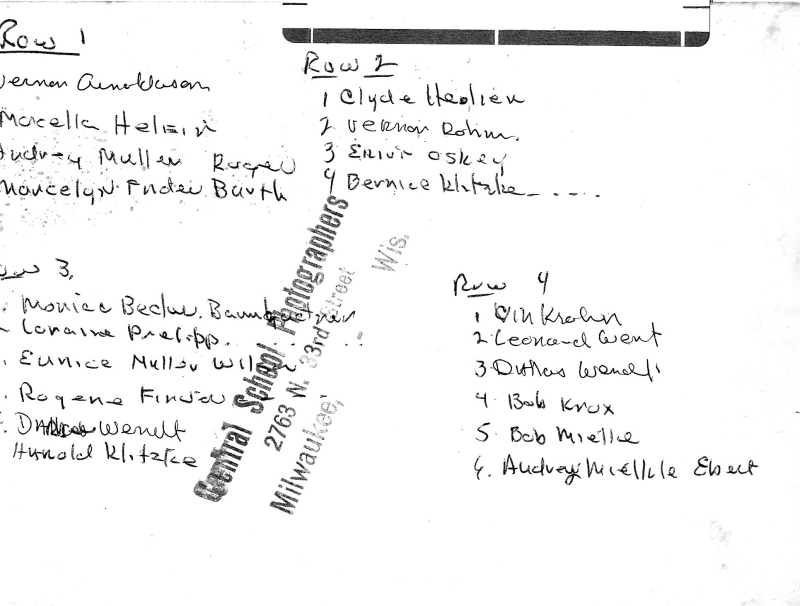 Row 1
Vernon Arnoldason
Marcella Helein
Audrey Mullen
Marcelyn Barth
Row 2
1 Clyde Heolien
2 Vernon Rohm.
3 Oskey
4 Bernice Klitzke
Row 3,
Monica Becker. Baumgartner
Loraine Prelipp.
Eunice Muller Wilson
Rogene
Wendt
Harold Klitzke
Central School Photographers
2763 N. 33rd Street
Milwaukee, Wis.
Row 4
1 Krohn
2 Leonard Went
3 Wendt
4 Bob Knox
5. Bob Mielke
6. Audrey Ebert